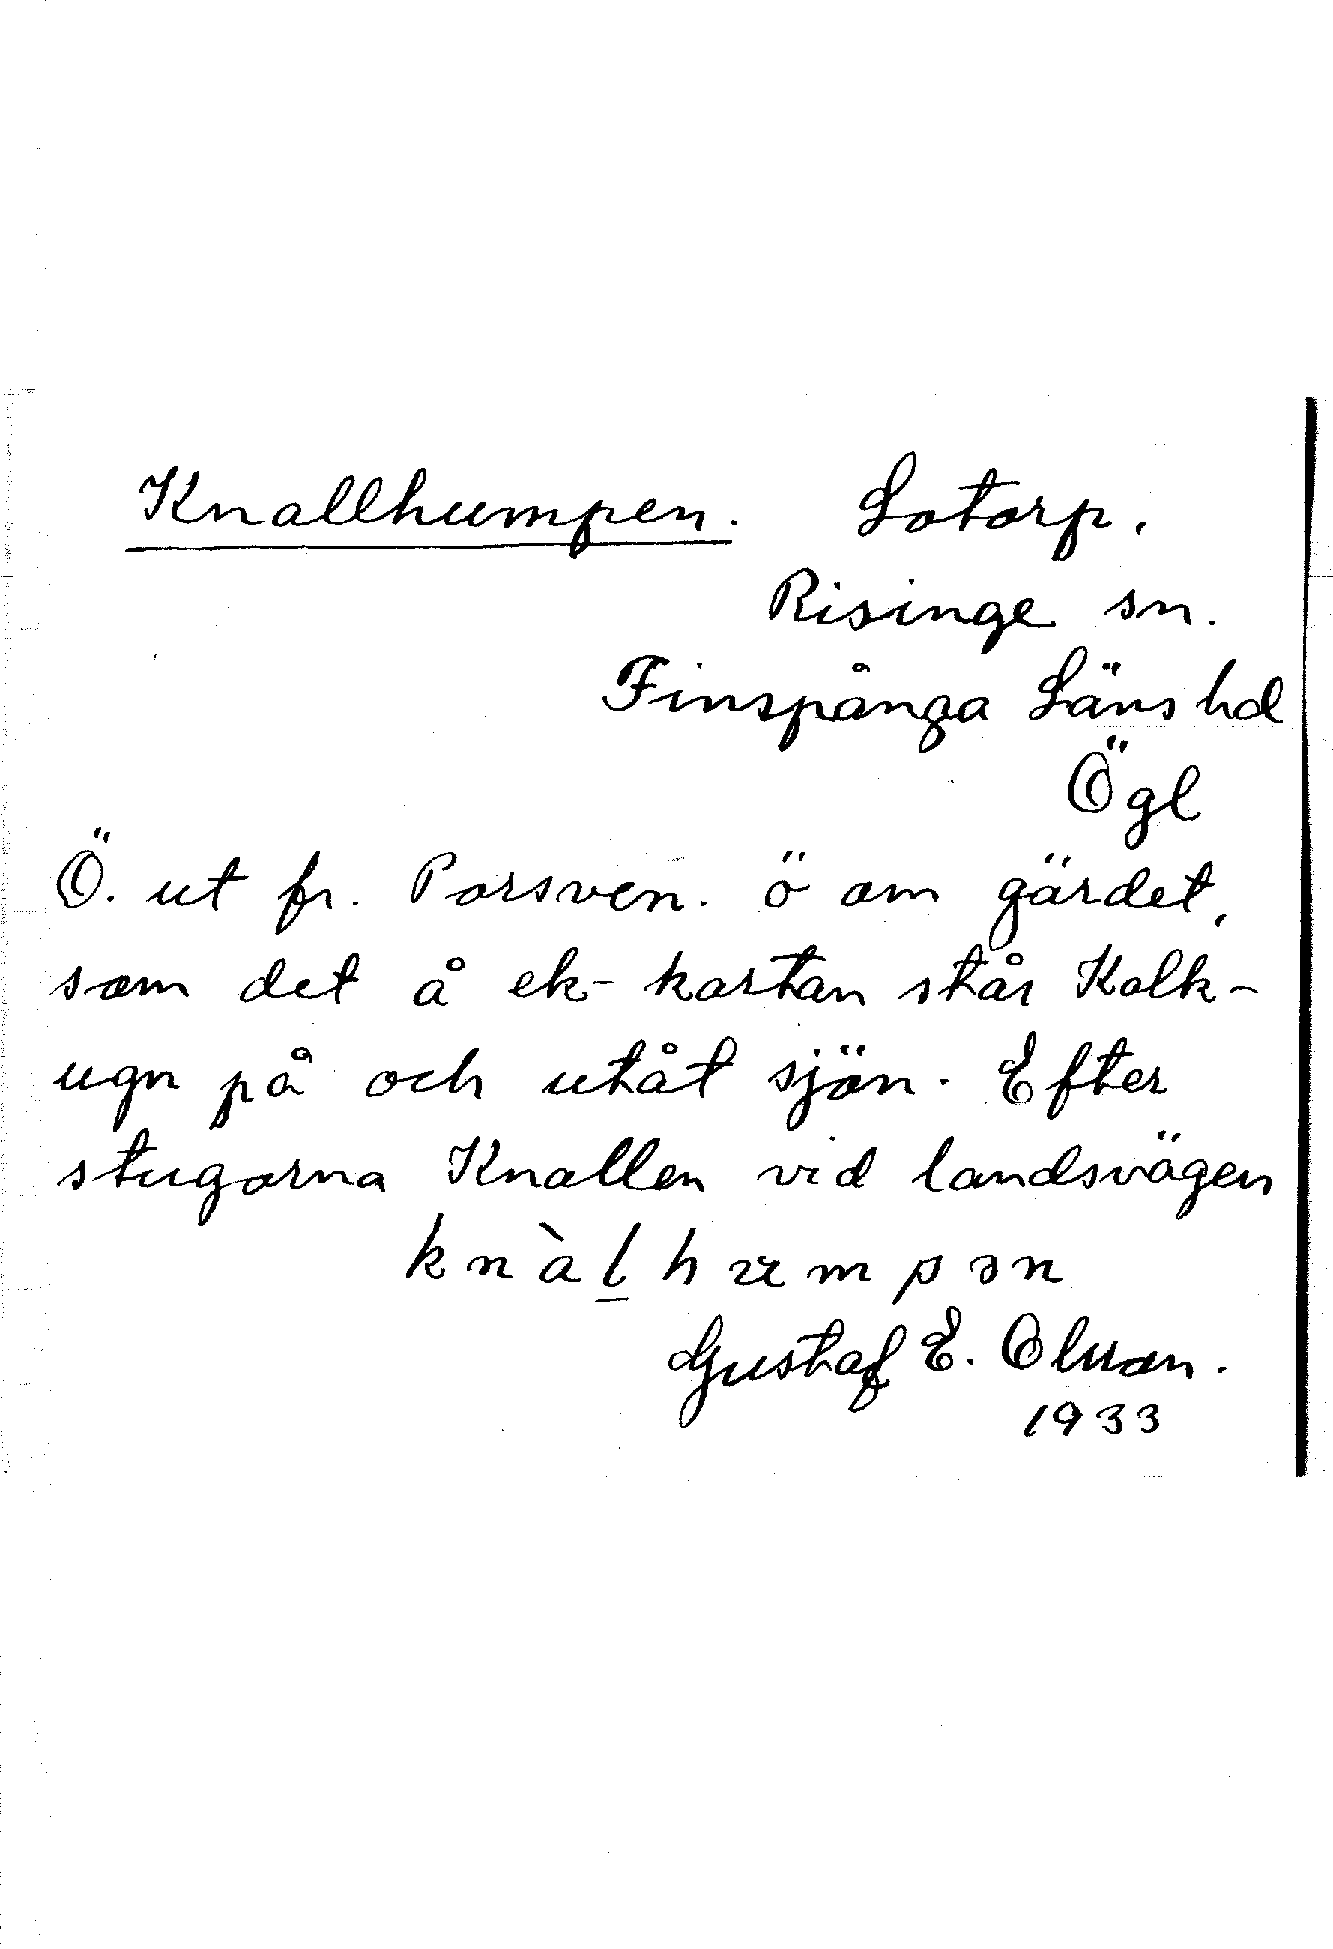 Knallhumpen. Lotorp.
Risinge sn.
Finspånga Läns hd
Ögl
Ö. ut fr. Porsven. ö om gärdet,
som det å ek-kartan står Kalk-
ugn på och utåt sjön. Efter
stugorna Knallen vid landsvägen
knàlhumpən
Gustaf E. Olsson.
1933